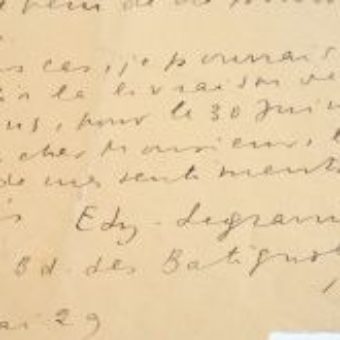 de
cas, je pourrais
la livraison de
pour le 30 Juin
cher Monsieur, l
de mes sentiments
Edy-Legran
Bd. des Batignol
29